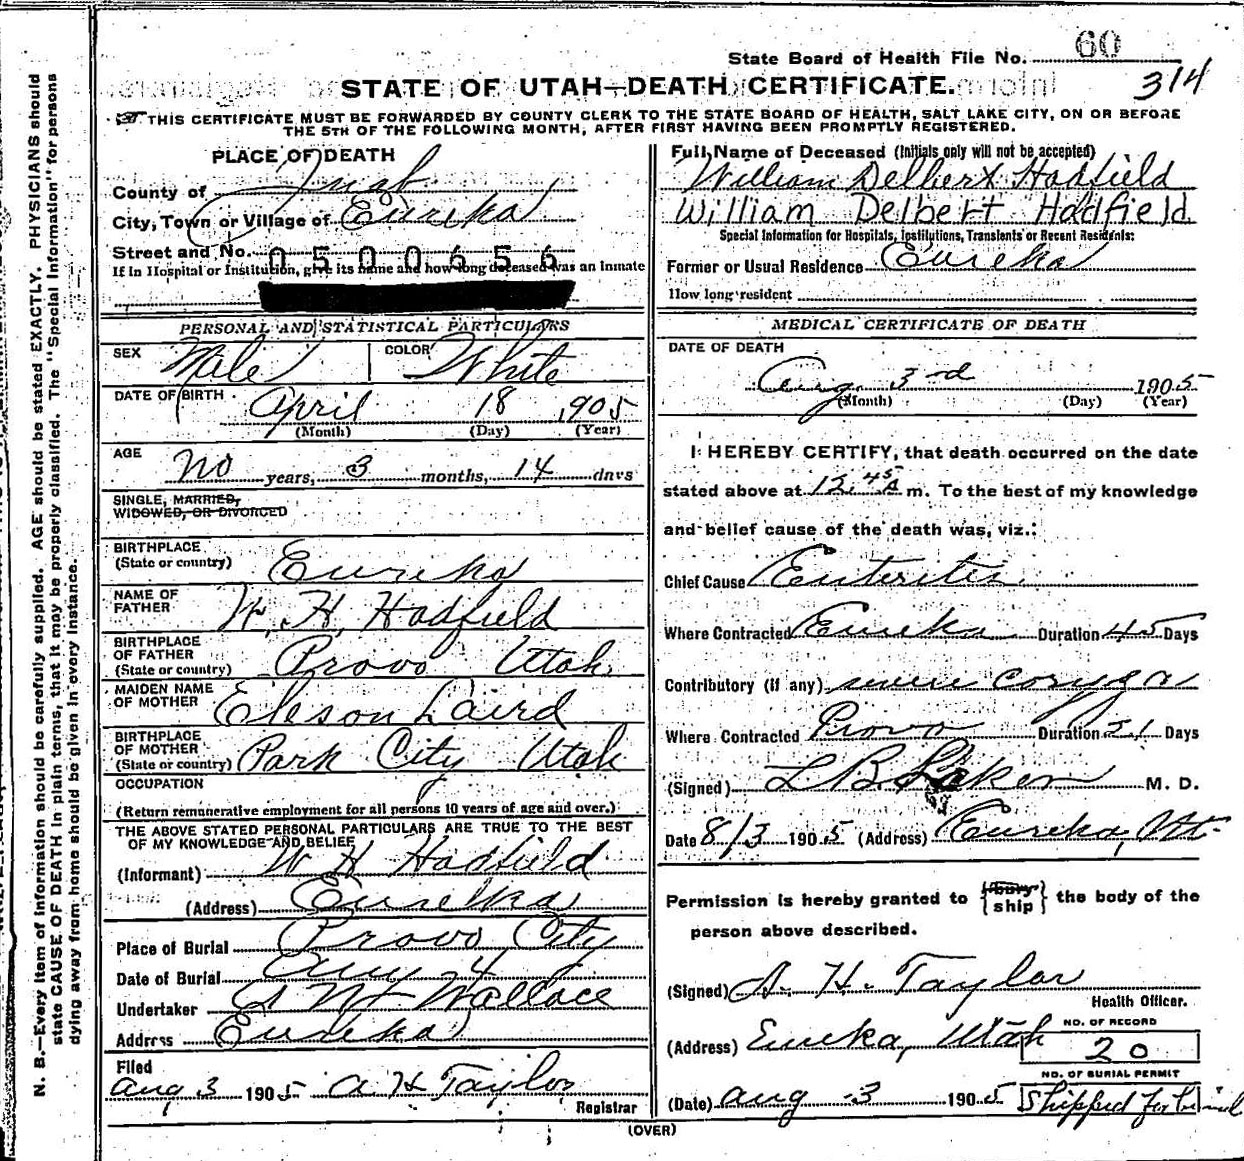 State Board of Health File No. 60
STATE OF UTAH—DEATH CERTIFICATE.
314
THIS CERTIFICATE MUST BE FORWARDED BY COUNTY CLERK TO THE STATE BOARD OF HEALTH, SALT LAKE CITY, ON OR BEFORE
THE 5TH OF THE FOLLOWING MONTH, AFTER FIRST HAVING BEEN PROMPTLY REGISTERED.
PLACE OF DEATH
County of Juab
City, Town or Village of Eureka
Street and No.
0500656
If in Hospital or Institution, give its name and how long deceased was an inmate
PERSONAL AND STATISTICAL PARTICULARS
SEX Male COLOR White
DATE OF BIRTH April 18 1905
(Month) (Day) (Year)
AGE No years, 3 months, 14 days
SINGLE, MARRIED,
WIDOWED, OR DIVORCED
BIRTHPLACE
(State or country) Eureka
NAME OF
FATHER W. H. Hadfield
BIRTHPLACE
OF FATHER
(State or country) Provo Utah
MAIDEN NAME
OF MOTHER Eleson Laird
BIRTHPLACE
OF MOTHER
(State or country) Park City Utah
OCCUPATION
(Return remunerative employment for all persons 10 years of age and over.)
THE ABOVE STATED PERSONAL PARTICULARS ARE TRUE TO THE BEST
OF MY KNOWLEDGE AND BELIEF
(Informant) W H Hadfield
(Address) Eureka
Place of Burial Provo City
Date of Burial Aug 4
Undertaker Wallace
Address Eureka
Filed
Aug 3 1905 A H Taylor
Registrar
Full Name of Deceased (Initials only will not be accepted)
William Delbert Hadfield
William Delbert Hadfield
Special Information for Hospitals, Institutions, Transients or Recent Residents:
Former or Usual Residence Eureka
How long resident
MEDICAL CERTIFICATE OF DEATH
DATE OF DEATH
Aug. 3rd 1905
(Month) (Day) (Year)
I HEREBY CERTIFY, that death occurred on the date
stated above at 12.45 A m. To the best of my knowledge
and belief cause of the death was, viz.:
Chief Cause Enteritis
Where Contracted Eureka Duration 45 Days
Contributory (if any) severe coryza
Where Contracted Provo Duration 21 Days
(Signed) L B Laker M. D.
Date 8/3 1905 (Address) Eureka, Ut.
Permission is hereby granted to {bury ship} the body of the
person above described.
(Signed) A. H. Taylor
Health Officer.
(Address) Eureka, Utah
NO. OF RECORD
20
NO. OF BURIAL PERMIT
(Date) Aug 3 1905 Shipped for burial
(OVER)
N. B.—Every item of information should be carefully supplied. AGE should be stated EXACTLY. PHYSICIANS should
state CAUSE OF DEATH in plain terms, that it may be properly classified. The "Special Information" for persons
dying away from home should be given in every instance.